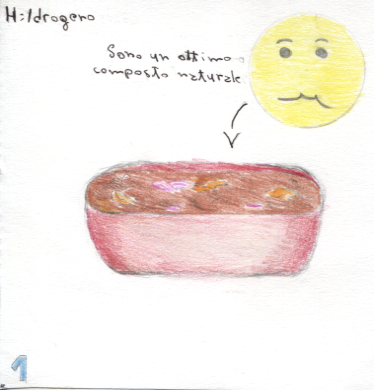 H: Idrogeno
Sono un ottimo
composto naturale
1